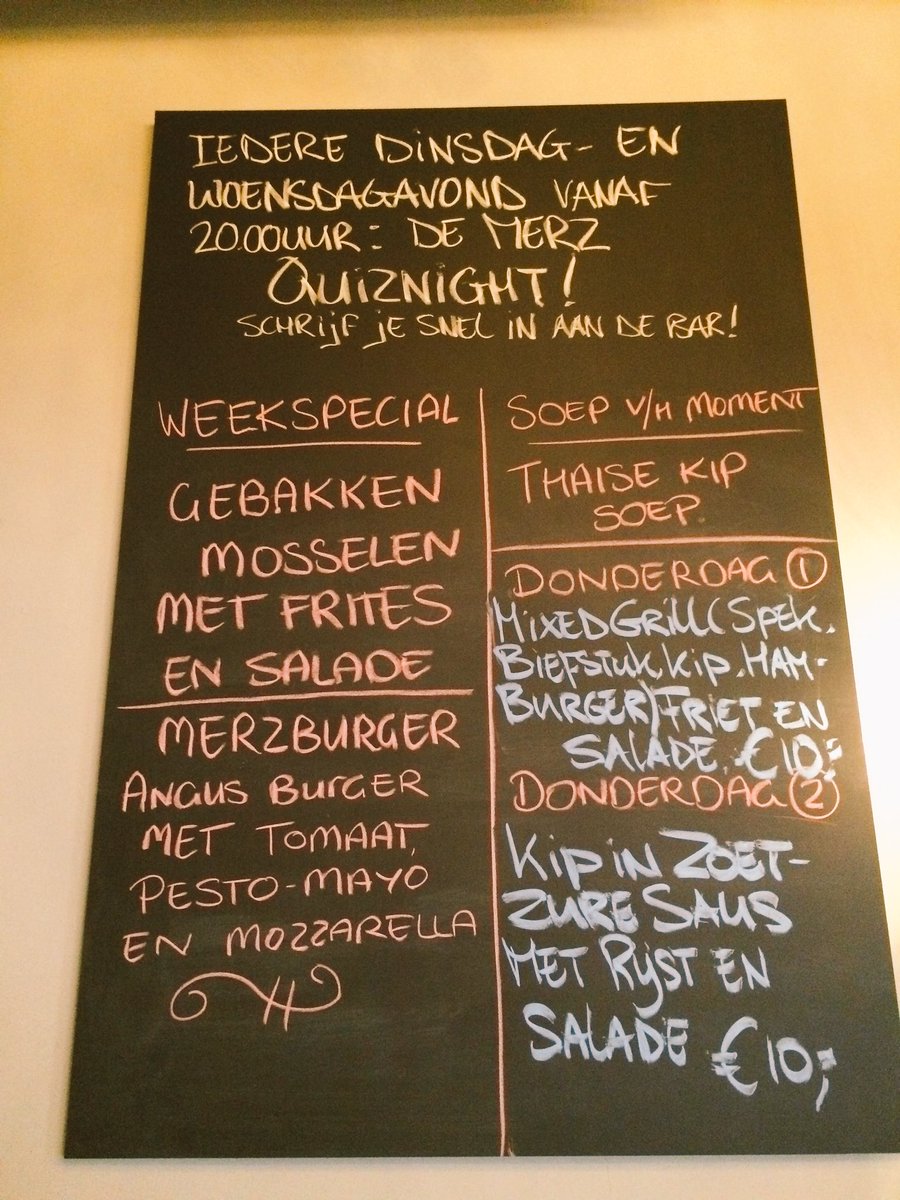 IEDERE DINSDAG- EN
WOENSDAGAVOND VANAF
20.00UUR: DE MERZ
QUIZNIGHT!
SCHRIJF JE SNEL IN AAN DE BAR!
WEEKSPECIAL
GEBAKKEN
MOSSELEN
MET FRITES
EN SALADE
MERZBURGER
ANGUS BURGER
MET TOMAAT,
PESTO-MAYO
EN MOZZARELLA
SOEP V/H MOMENT
THAISE KIP
SOEP.
DONDERDAG 1
MIXED GRILL (SPEK.
BIEFSTUK, KIP. HAM-
BURGER) FRIET EN
SALADE. €10,-
DONDERDAG 2
KIP IN ZOET-
ZURE SAUS
MET RIJST EN
SALADE €10,-